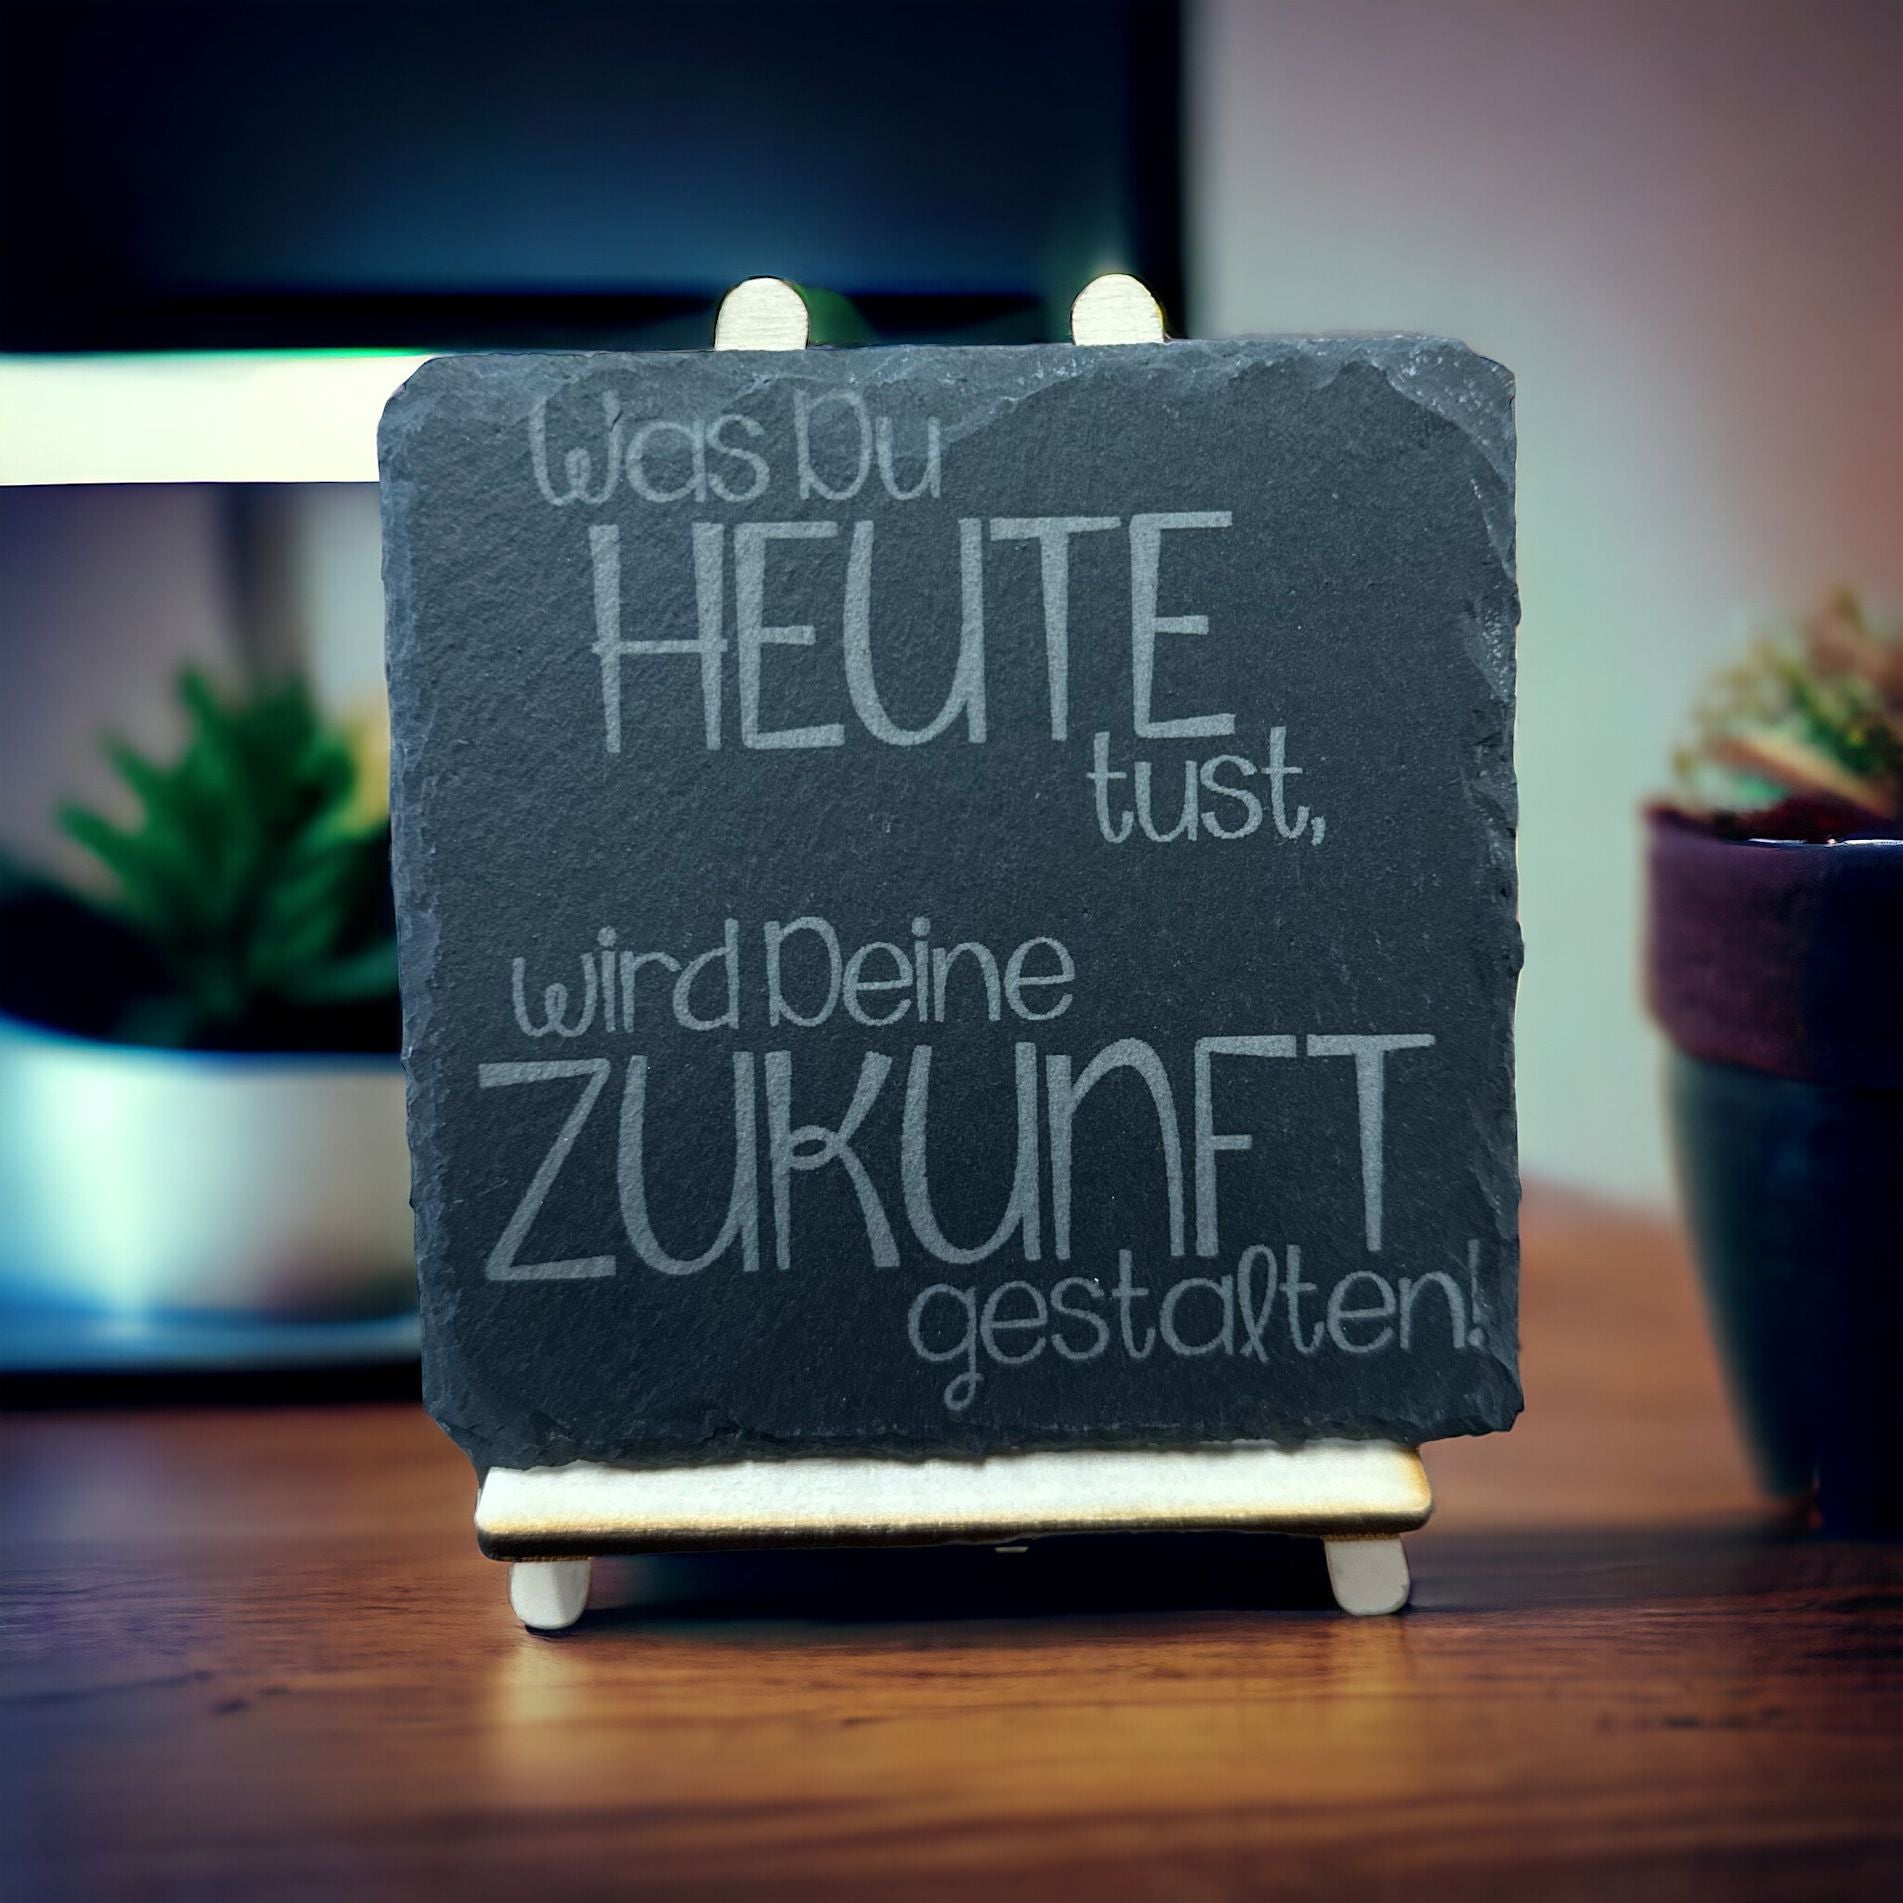 Was Du
HEUTE
tust,
wird Deine
ZUKUNFT
gestalten!